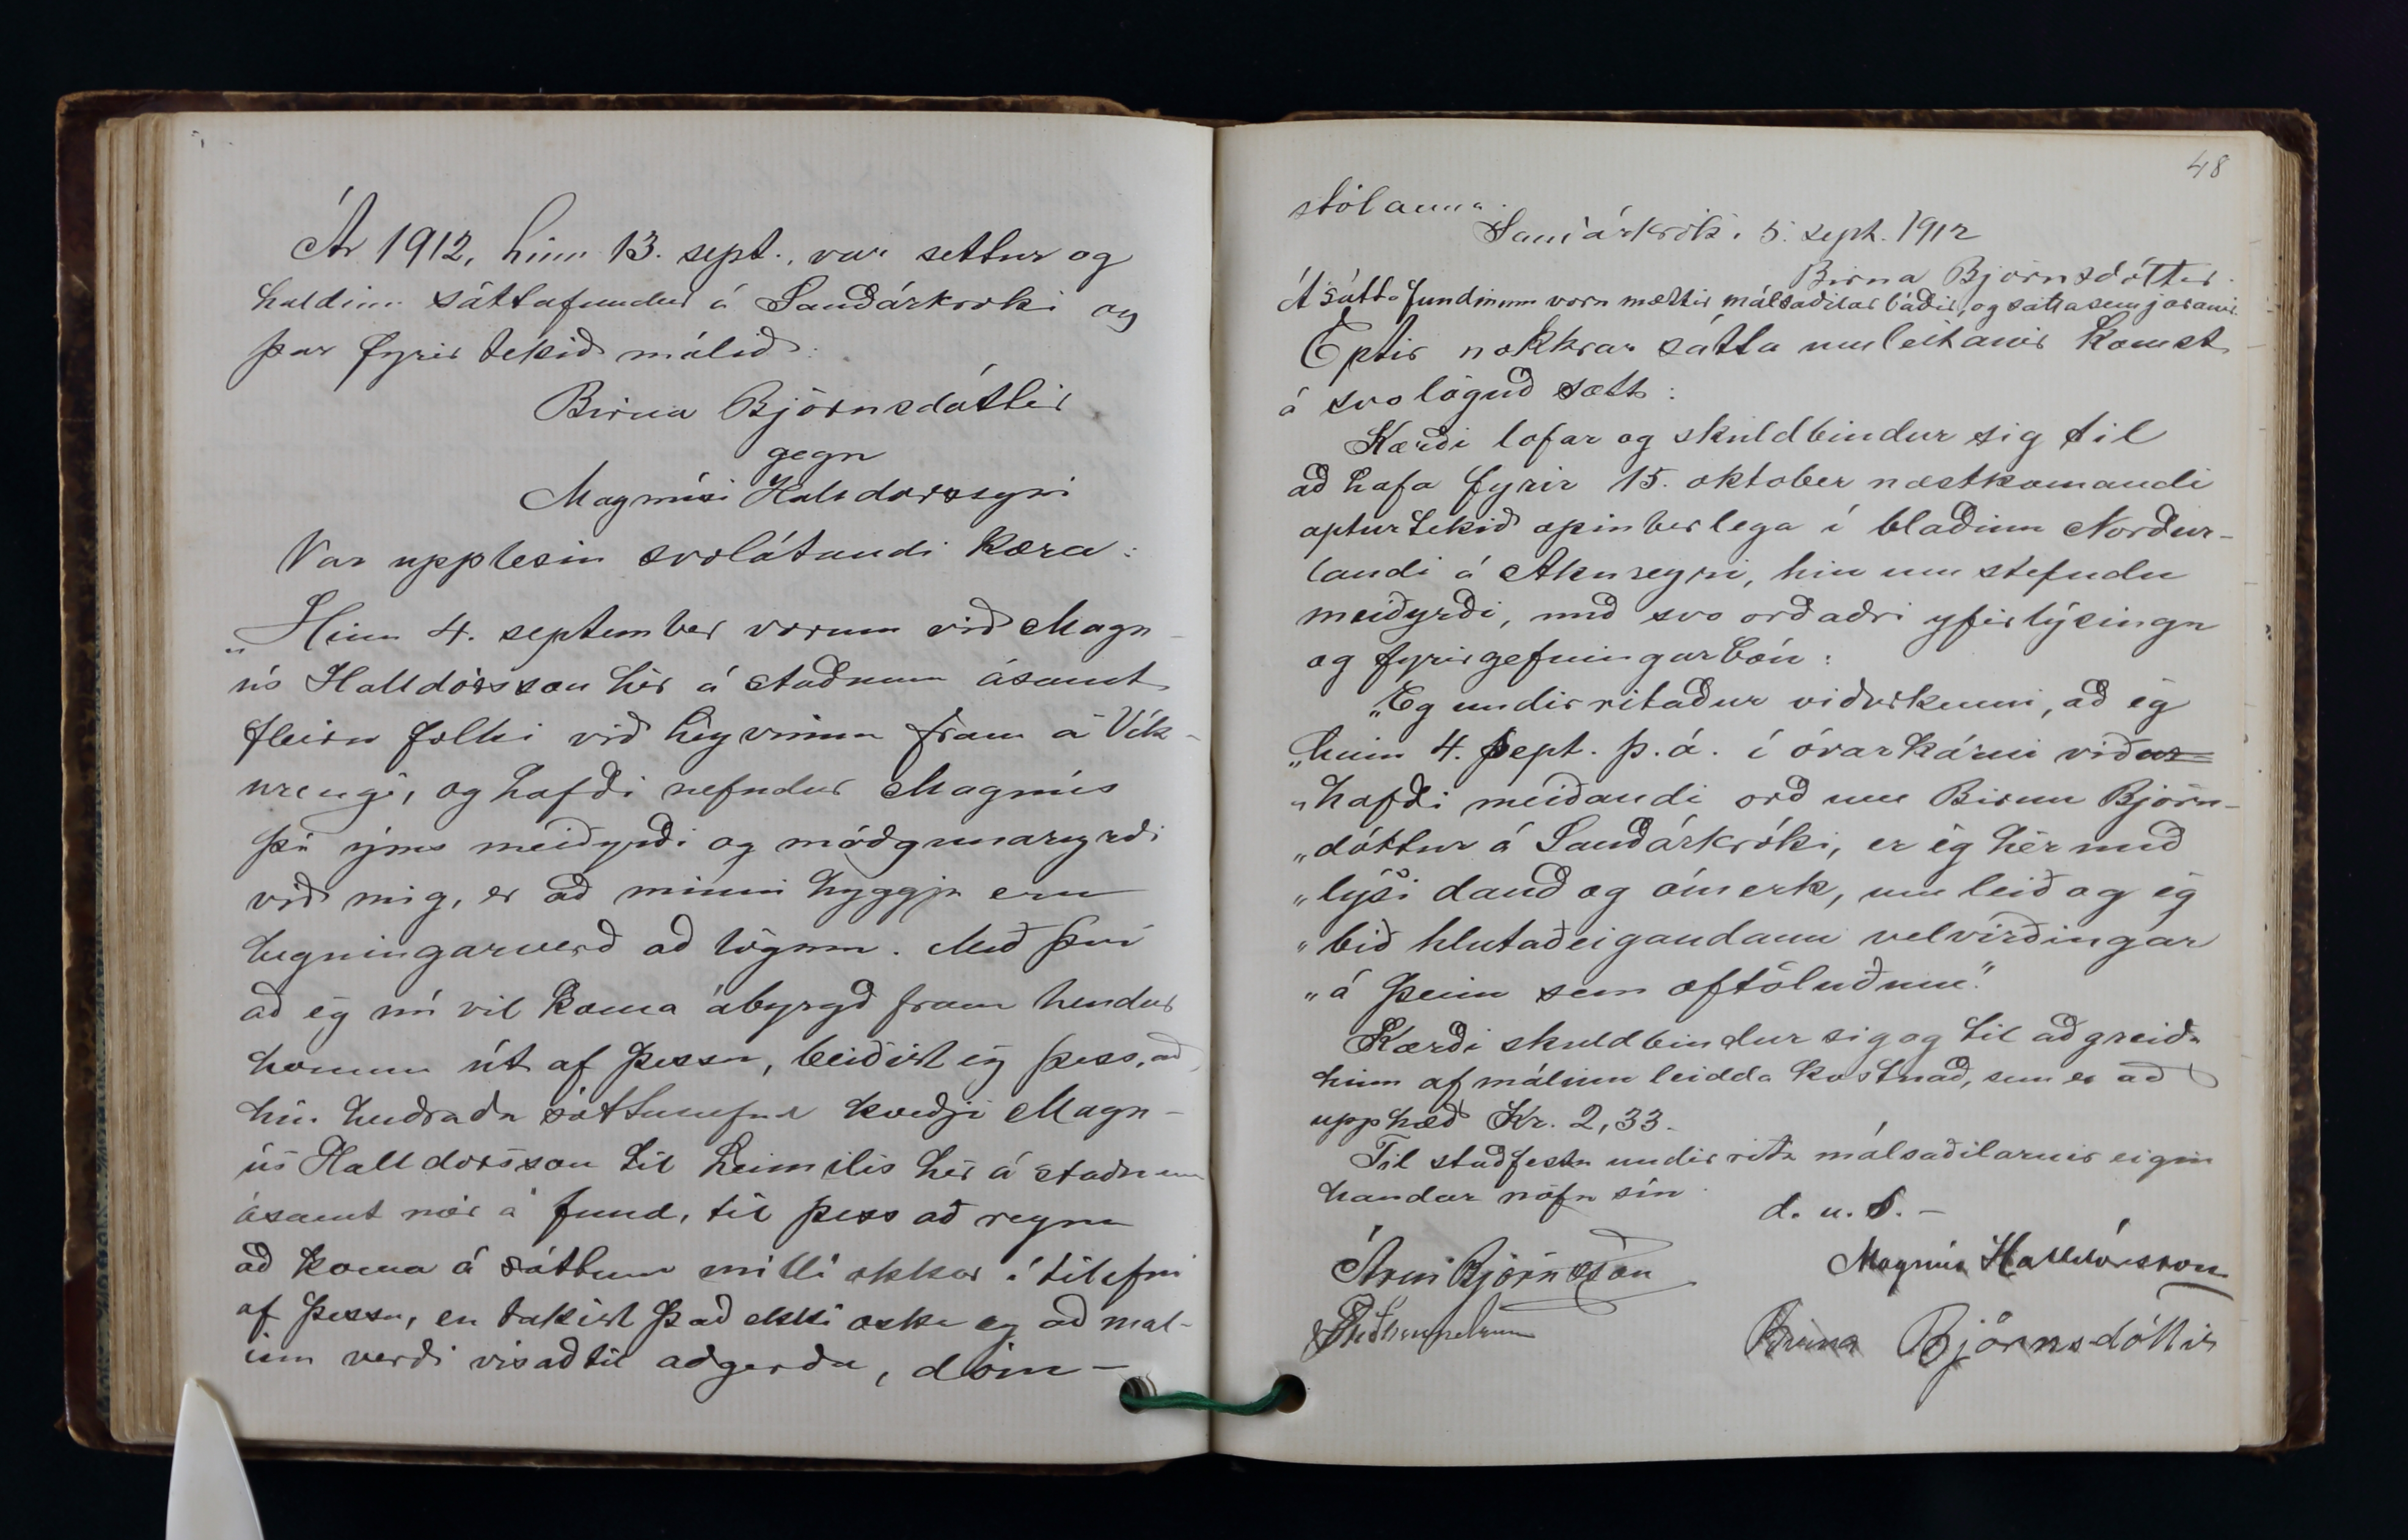 Ár 1912, hinn 13. sept., var settur og
haldinn sáttafundur á Sauðárkróki og
þar fyrir tekið málið:
Birna Björnsdóttir
gegn
Magnúsi Halldorssyni
Var upplesin svolátandi kæra:
„Hinn 4. september vorum við Magn-
ús Halldórsson hér á staðnum ásamt
fleiru fólki við heyvinnu fram á Vík-
urengi, og hafði nefndur Magnús
þá ýms meiðyrði og móðgunaryrði
við mig, er að minni hyggju eru
hegningarverð að lögum. Með því
að ég nú vil koma ábyrgð fram hendur
honum út af þessu, beiðist ég þess, að
hin heiðraða sáttanefnd kveðji Magn-
ús Halldorsson til heimilis hér á staðnum
ásamt mér á fund, til þess að reyna
að koma á sáttum milli okkar í tilefni
af þessu, en takist það ekki æski eg að mál-
inu verði vísað til aðgerða, dóm-
48
stólanna.
Sauðárkróki. 5. sept. 1912
Birna Björnsdóttir.
Á sáttafundinum voru mættir málsaðilar báðir, og sáttasemjararnir.
Eptir nokkrar sátta umleitanir komst
á svo löguð sætt:
Kærði lofar og skuldbindur sig til
að hafa fyrir 15. oktober næstkomandi
aptur tekið opinberlega í blaðinu Norður-
landi á Akureyri, hin um stefndu
meiðyrði, með svo orðaðri yfirlýsingu
og fyrirgefningarbón:
„Eg undirritaður viðurkenni, að ég
„hinn 4. sept. þ.á. í óvarkárni viður
„hafði meiðandi orð um Birnu Björn-
„dóttur á Sauðárkróki, er ég hér með
„lýsi dauð og ómerk, um leið og ég
„bið hlutaðeigandann velvirðingar
„á þeim sem oftöluðum."
Kærði skuldbindur sig og til að greiða
hinn af málinu leidda kostnað, sem er að
upphæð Kr. 2,33.
Til staðfestu undirrita málsaðilarnir eigin
handar nöfn sín.
d. u. s. -
Árni Björnsson
Magnús Halldórsson
Birna Björnsdóttir